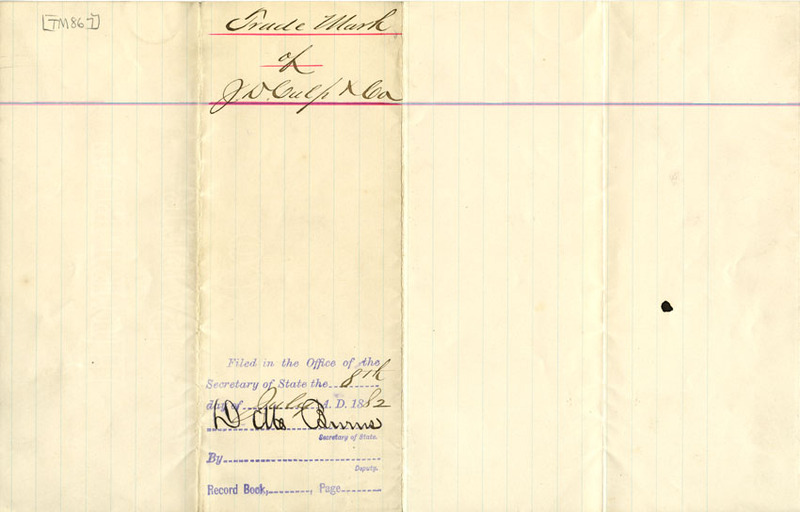 [TM867]
Trade Mark
of
J. D. Culp & Co
Filed in the Office of the
Secretary of State the 8th
day of July A. D. 1882
D M Burns
Secretary of State.
By
Deputy.
Record Book, , Page